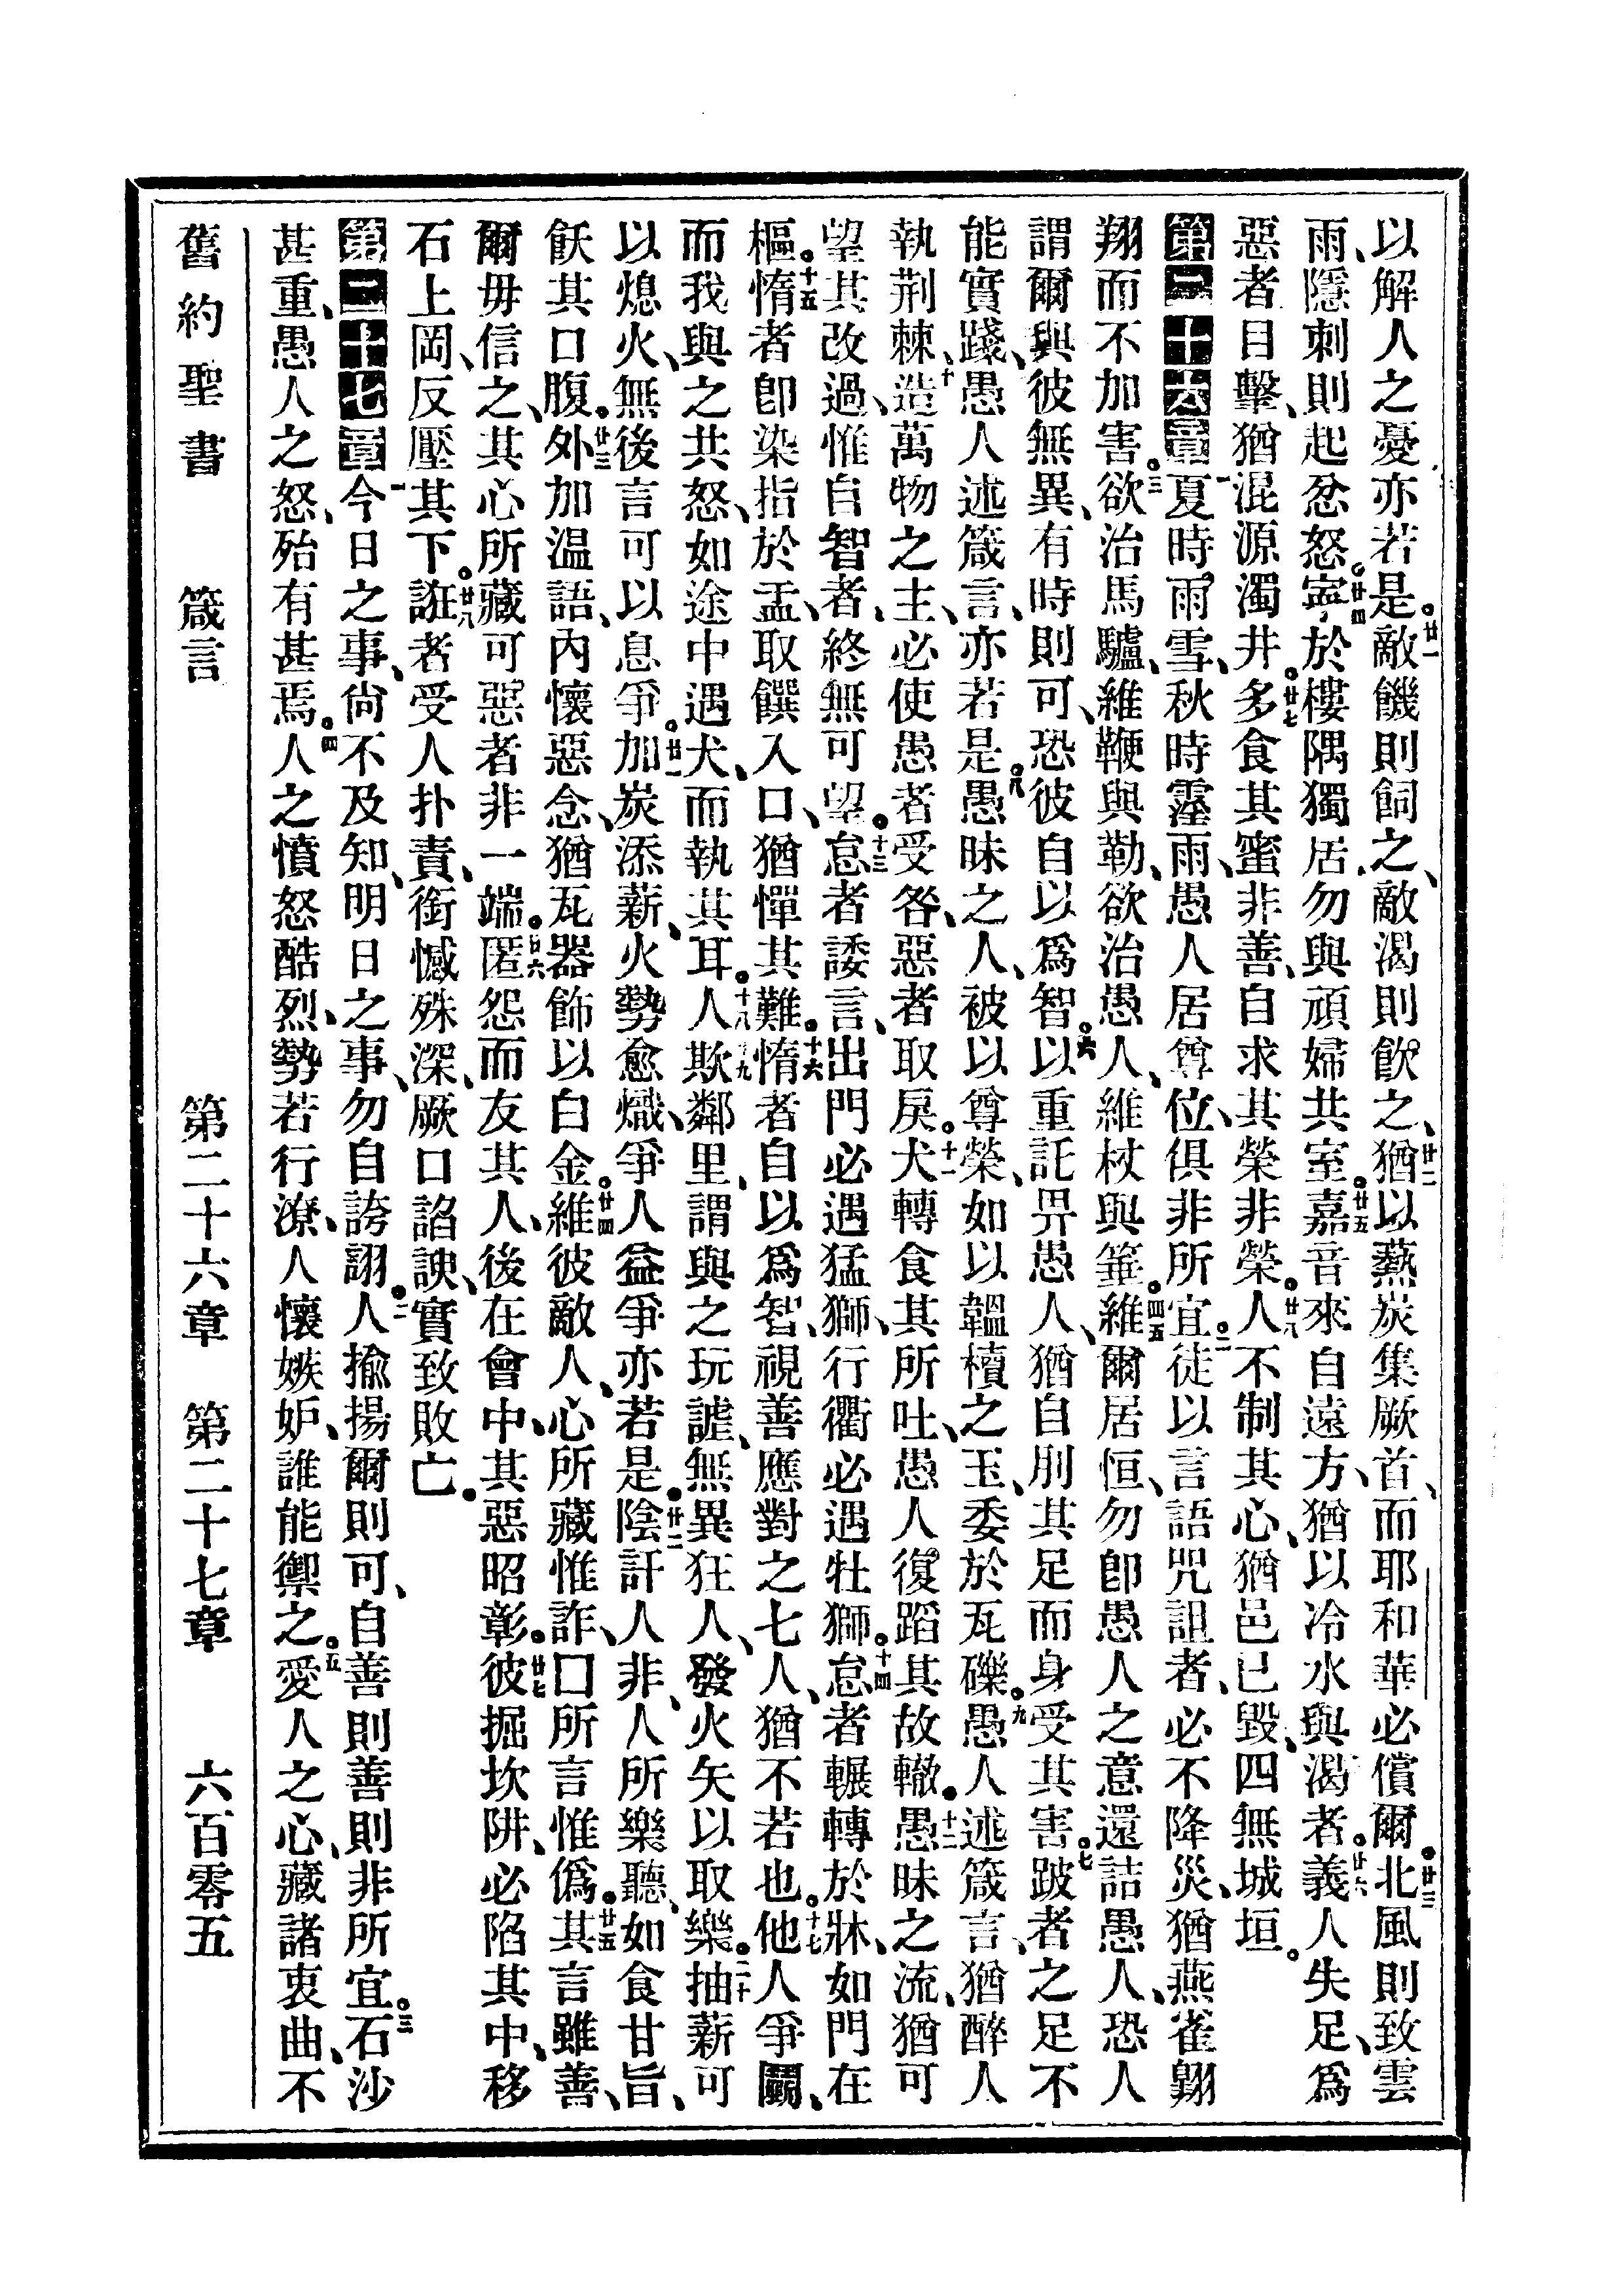 以解人之憂亦若是。廿一敵饑則飼之、敵渴則飲之、廿二猶以爇炭集厥首、而耶和華必償爾。廿三北風則致雲
雨、隱刺則起忿怒。廿四寧於樓隅獨居、勿與頑婦共室。廿五嘉音來自遠方、猶以冷水與渴者。廿六義人失足、爲
惡者目擊、猶混源濁井。廿七多食其蜜非善、自求其榮非榮。廿八人不制其心、猶邑已毀、四無城垣。
第二十六章一夏時雨雪、秋時霪雨、愚人居尊位、俱非所宜。二徒以言語咒詛者、必不降災、猶燕雀翺
翔而不加害。三欲治馬驢、維鞭與勒、欲治愚人、維杖與箠。四五維爾居恒、勿卽愚人之意、還詰愚人、恐人
謂爾與彼無異、有時則可、恐彼自以爲智。六以重託畀愚人、猶自刖其足而身受其害。七跛者之足不
能實踐、愚人述箴言、亦若是。八愚昧之人、被以尊榮、如以韞櫝之玉、委於瓦礫。九愚人述箴言、猶醉人
執荆棘、十造萬物之主、必使愚者受咎、惡者取戾。十一犬轉食其所吐、愚人復蹈其故轍。十二愚昧之流、猶可
望其改過、惟自智者、終無可望。十三怠者諉言、出門必遇猛獅、行衢必遇牡獅。十四怠者輾轉於牀、如門在
樞。十五惰者卽染指於盂、取饌入口、猶憚其難。十六惰者自以爲智、視善應對之七人、猶不若也。十七他人爭鬬、
而我與之共怒、如途中遇犬、而執其耳。十八十九人欺鄰里、謂與之玩謔、無異狂人、發火矢以取樂。二十抽薪可
以熄火、無後言可以息爭。廿一加炭添薪、火勢愈熾、爭人益爭亦若是。廿二陰訐人非、人所樂聽、如食甘旨、
飫其口腹。廿三外加温語、內懷惡念、猶瓦器飾以白金。廿四維彼敵人、心所藏惟詐、口所言惟僞。廿五其言雖善、
爾毋信之、其心所藏可惡者非一端。廿六匿怨而友其人、後在會中、其惡昭彰。廿七彼掘坎阱、必陷其中、移
石上岡、反壓其下。廿八誑者受人扑責、銜憾殊深、厥口諂諛、實致敗亡。
第二十七章一今日之事、尙不及知、明日之事、勿自誇詡。二人揄揚爾則可、自善則善則非所宜。三石沙
甚重、愚人之怒、殆有甚焉。四人之憤怒酷烈、勢若行潦、人懷嫉妒、誰能禦之。五愛人之心、藏諸衷曲、不
舊約聖書　箴言　第二十六章　第二十七章　六百零五